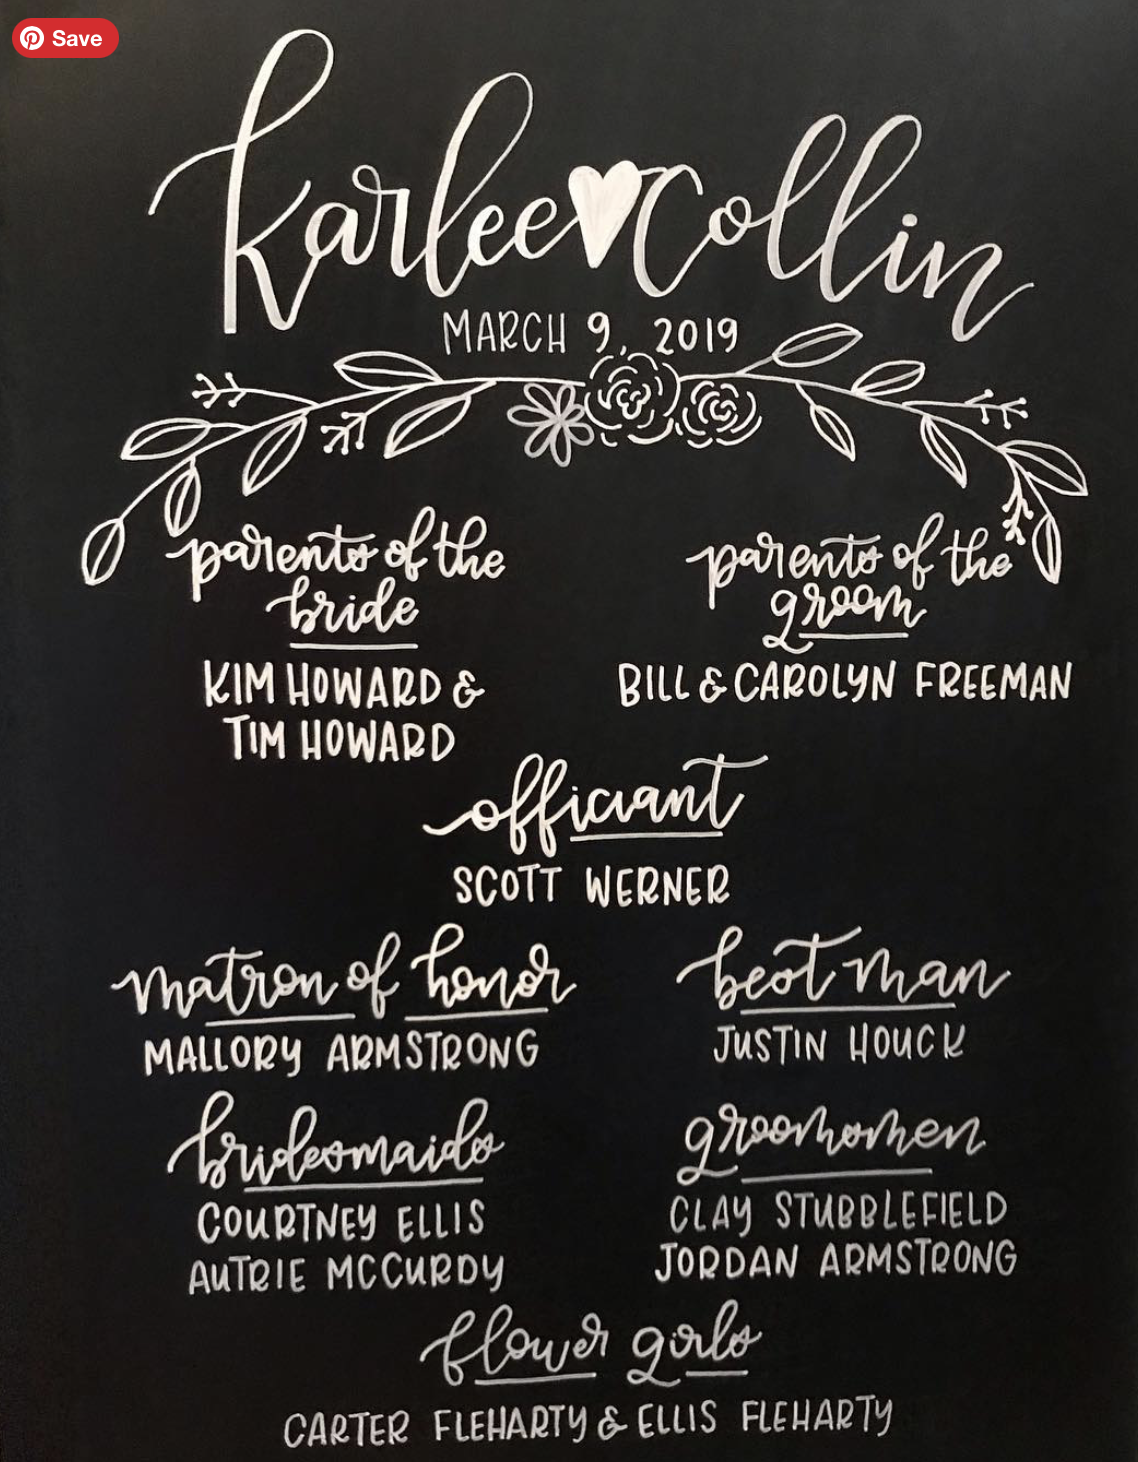 Save
Karlee ♥ Collin
MARCH 9, 2019
parents of the
bride
KIM HOWARD &
TIM HOWARD
parents of the
groom
BILL & CAROLYN FREEMAN
officiant
SCOTT WERNER
matron of honor
MALLORY ARMSTRONG
best man
JUSTIN HOUCK
bridesmaids
COURTNEY ELLIS
AUTRIE MCCURDY
groomsmen
CLAY STUBBLEFIELD
JORDAN ARMSTRONG
flower girls
CARTER FLEHARTY & ELLIS FLEHARTY